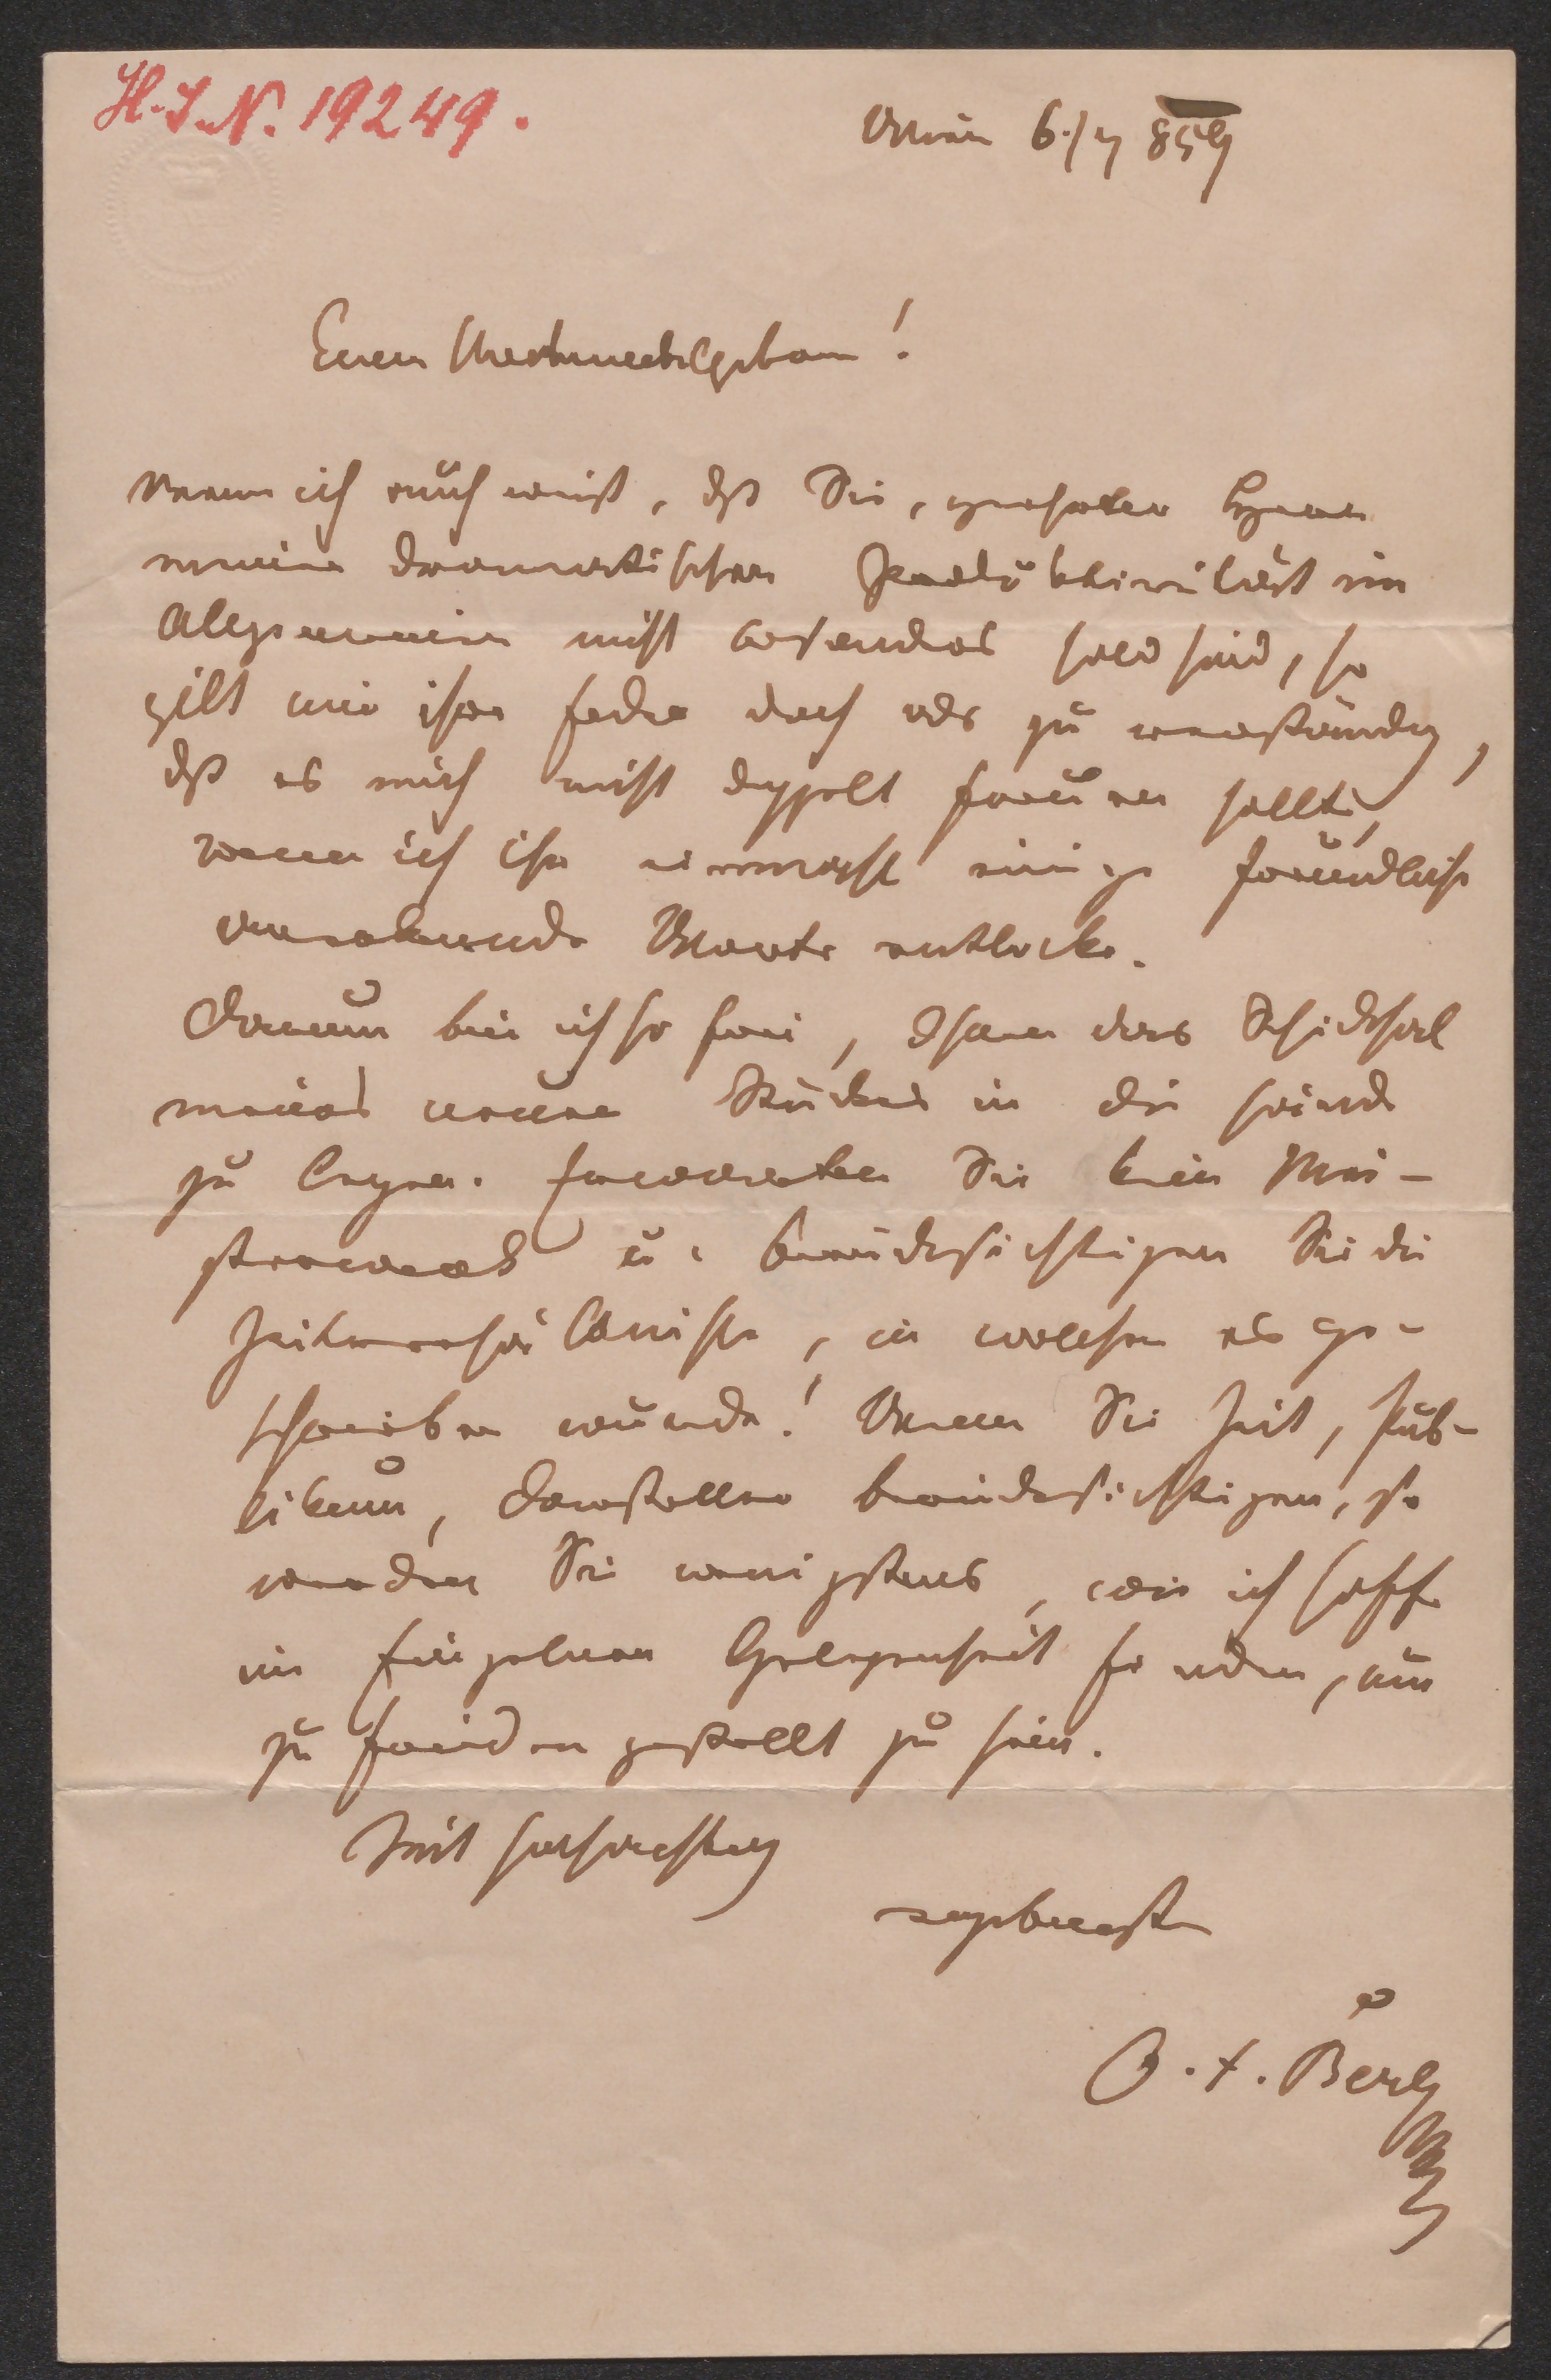 H.I.N. 19249.
Wien 6./7 859
Euer Hochwohlgeboren!
Wenn ich auch weiß, dß Sie, geehrter Herr
meiner dramatischen Produktivität im
Allgemeinen nicht besonders hold sind, so
gilt mir ihre Feder doch als zu wahrständig,
dß es mich nicht doppelt freuen sollte,
wenn ich ihr einmal einige freundliche
anerkennende Worte entlocke.
Darum bin ich so frei, Ihnen das Schicksal
meines neuen Stückes in die Hände
zu legen. Erwarten Sie kein Mei-
sterwerk u. berücksichtigen Sie die
Zeitverhältnisse, in welchen es ge-
schrieben wurde! Wenn Sie Zeit, Pub-
likum, Darsteller berücksichtigen, so
werden Sie wenigstens, wie ich hoffe
im Einzelnen Gelegenheit finden, um
zu frieden gestellt zu sein.
Mit Hochachtung
ergebenster
O. F. Berg